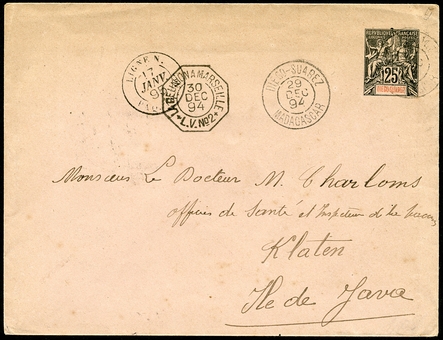 LIGNE N
17
JANV
95
LA REUNION A MARSEILLE
30
DEC
94
L.V. No2
DIEGO-SUAREZ
29
DEC
94
MADAGASCAR
REPUBLIQUE FRANÇAISE
25
DIEGO-SUAREZ
Monsieur Le Docteur M. Charloms
officier de Santé et Inspecteur
Klaten
Ile de Java